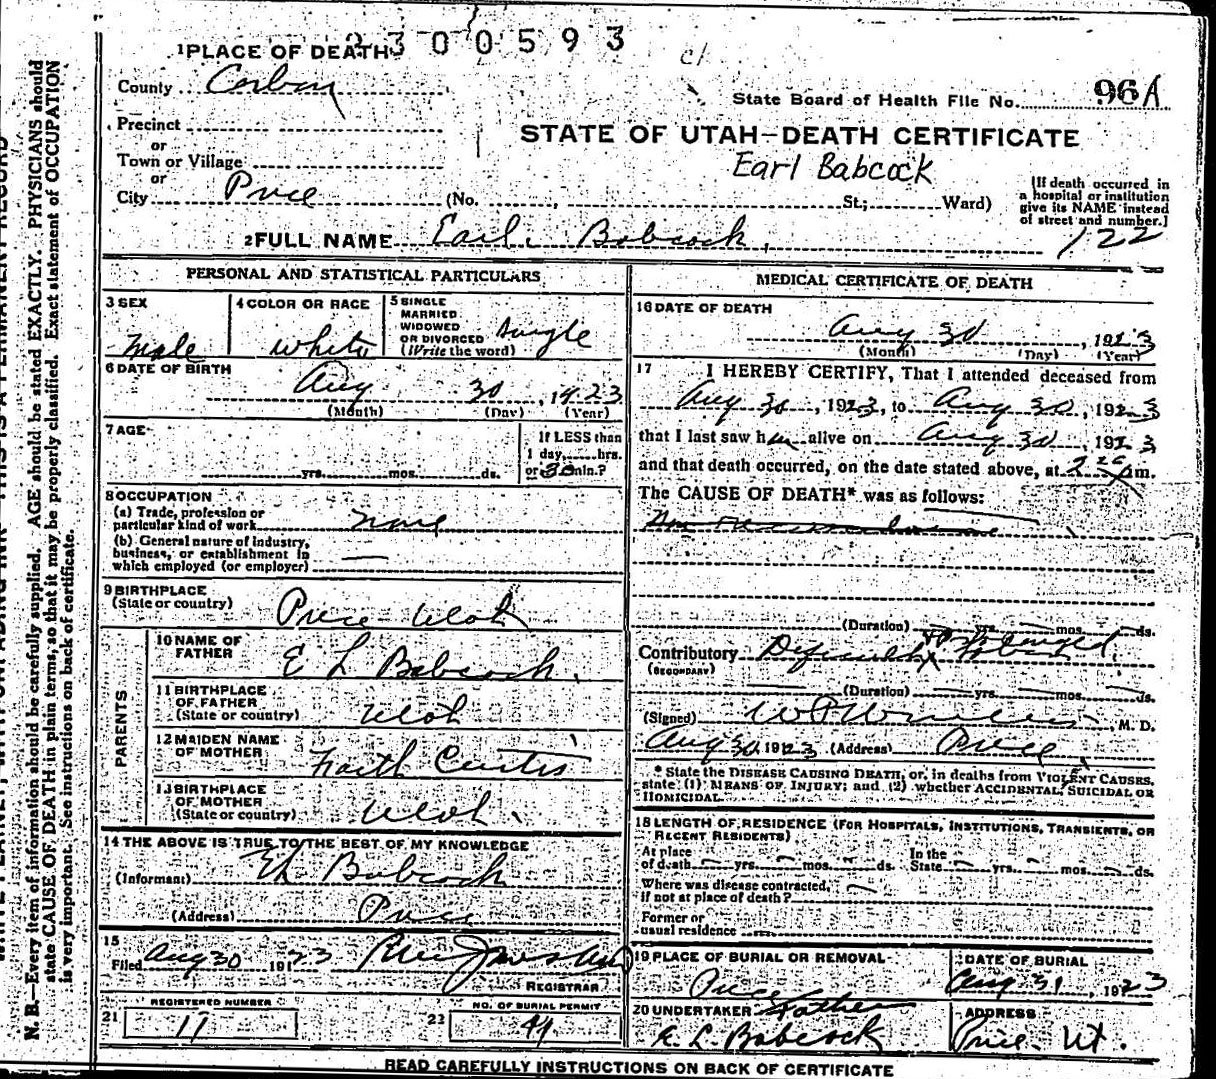 2300593
1 PLACE OF DEATH
County Carbon
State Board of Health File No. 96A
Precinct
or
STATE OF UTAH—DEATH CERTIFICATE
Town or Village
Earl Babcock
or
City Price (No. , St; Ward)
(If death occurred in
a hospital or institution
give its NAME instead
of street and number.)
2 FULL NAME Earl Babcock, 122
PERSONAL AND STATISTICAL PARTICULARS
3 SEX
Male
4 COLOR OR RACE
White
5 SINGLE
MARRIED
WIDOWED
OR DIVORCED
(Write the word)
Single
6 DATE OF BIRTH
Aug 30, 1923
(Month) (Day) (Year)
7 AGE
yrs. mos. ds.
If LESS than
1 day, hrs.
or 30 min.?
8 OCCUPATION
(a) Trade, profession or
particular kind of work None
(b) General nature of industry,
business, or establishment in
which employed (or employer)
9 BIRTHPLACE
(State or country) Price Utah
PARENTS
10 NAME OF
FATHER E L Babcock.
11 BIRTHPLACE
OF FATHER
(State or country) Utah
12 MAIDEN NAME
OF MOTHER Faith Curtis
13 BIRTHPLACE
OF MOTHER
(State or country) Utah.
14 THE ABOVE IS TRUE TO THE BEST OF MY KNOWLEDGE
(Informant) EL Babcock
(Address) Price
15
Filed Aug 30 1923
REGISTRAR
REGISTERED NUMBER
21 11
NO. OF BURIAL PERMIT
22 49
MEDICAL CERTIFICATE OF DEATH
16 DATE OF DEATH
Aug 30, 1923
(Month) (Day) (Year)
17 I HEREBY CERTIFY, That I attended deceased from
Aug 30, 1923, to Aug 30, 1923
that I last saw him alive on Aug 30 1923
and that death occurred, on the date stated above, at 2 pm.
The CAUSE OF DEATH* was as follows:
(Duration) yrs. mos. ds.
Contributory Difficult
(SECONDARY)
(Duration) yrs. mos. ds.
(Signed) , M. D.
Aug 30, 1923 (Address) Price
* State the DISEASE CAUSING DEATH, or, in deaths from VIOLENT CAUSES,
state (1) MEANS OF INJURY; and (2) whether ACCIDENTAL, SUICIDAL OR
HOMICIDAL.
18 LENGTH OF RESIDENCE (FOR HOSPITALS, INSTITUTIONS, TRANSIENTS, OR
RECENT RESIDENTS)
At place
of death yrs. mos. ds.
In the
State yrs. mos. ds.
Where was disease contracted,
if not at place of death?
Former or
usual residence
19 PLACE OF BURIAL OR REMOVAL
Price
DATE OF BURIAL
Aug 31, 1923
20 UNDERTAKER Father
E. L. Babcock
ADDRESS
Price Ut.
READ CAREFULLY INSTRUCTIONS ON BACK OF CERTIFICATE
N. B.—Every item of information should be carefully supplied. AGE should be stated EXACTLY. PHYSICIANS should
state CAUSE OF DEATH in plain terms, so that it may be properly classified. Exact statement of OCCUPATION
is very important. See instructions on back of certificate.